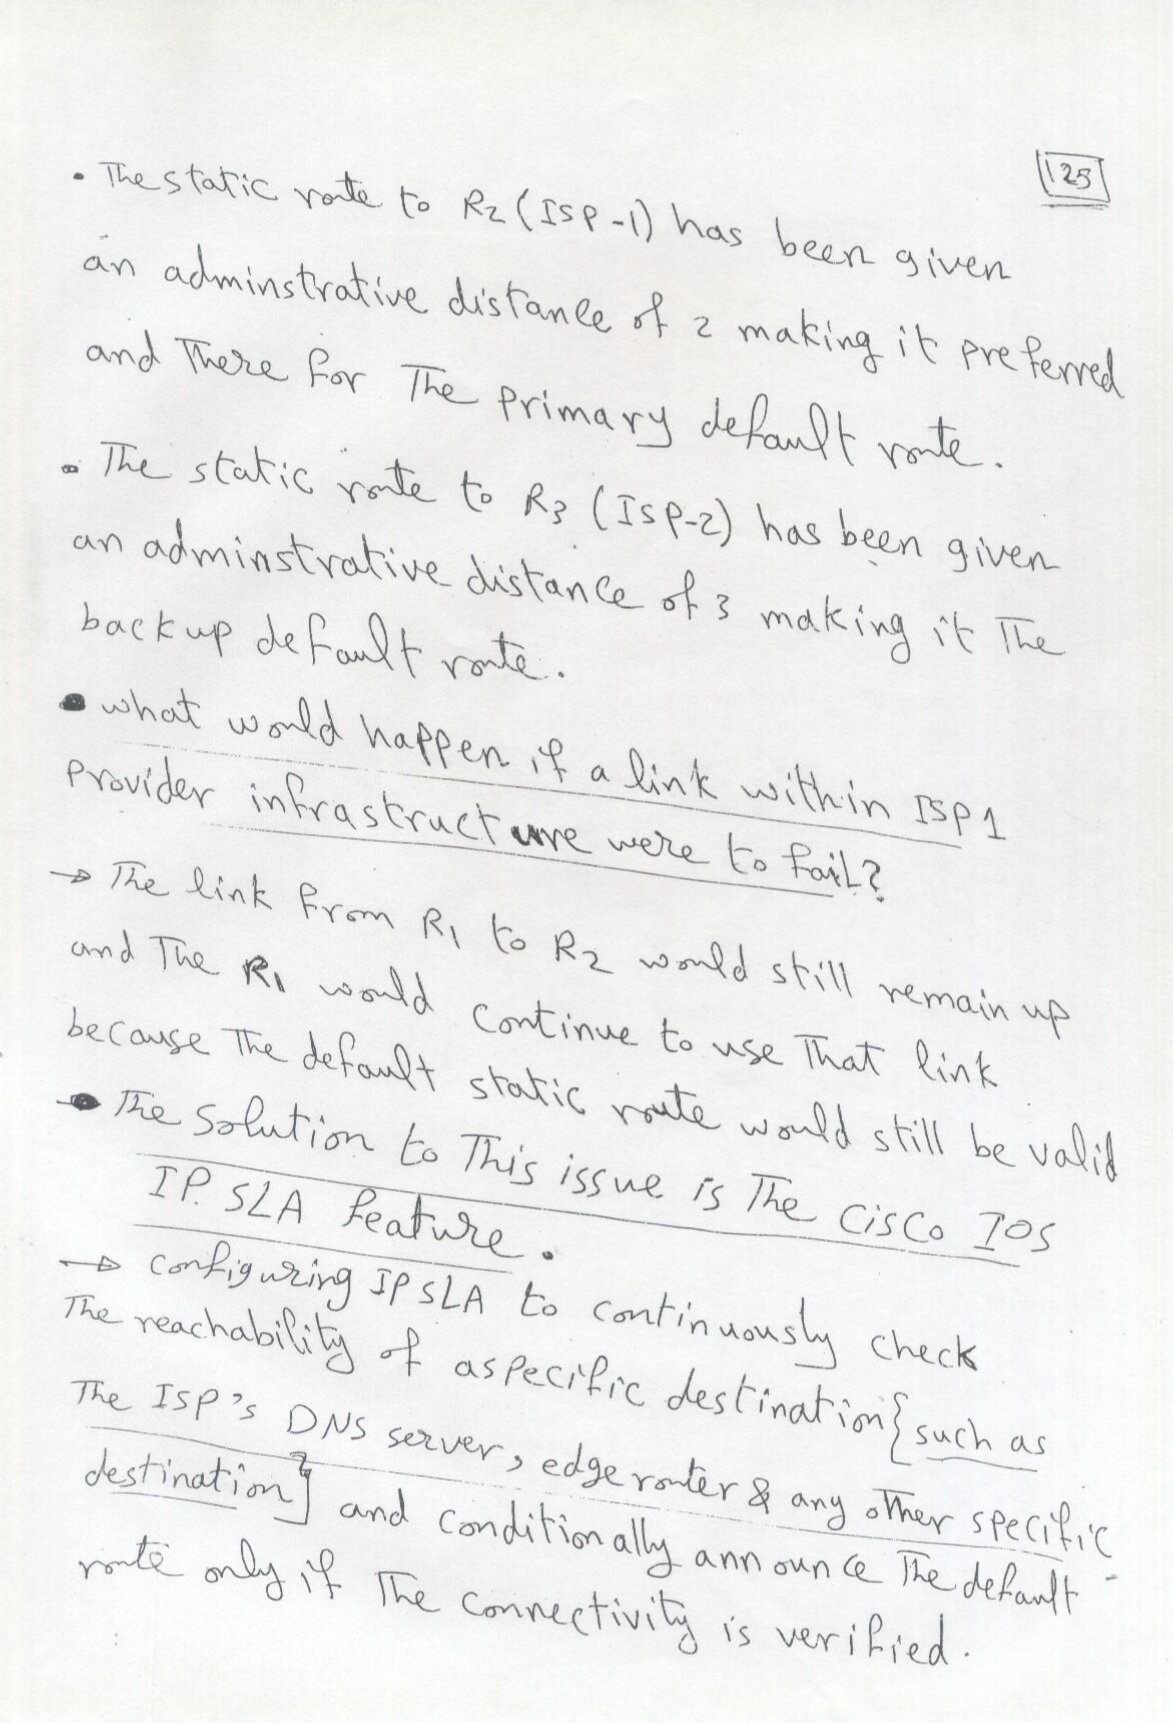 125
• The static route to R2 (ISP-1) has been given
an adminstrative distance of 2 making it preferred
and There for The primary default route.
• The static route to R3 (ISP-2) has been given
an adminstrative distance of 3 making it The
backup default route.
• what would happen if a link within ISP1
provider infrastructure were to fail?
→ The link from R1 to R2 would still remain up
and The R1 would continue to use That link
because The default static route would still be valid
• The solution to This issue is The Cisco IOS
IP. SLA feature.
→ configuring IP SLA to continuously check
The reachability of a specific destination {such as
The ISP's DNS server, edge router & any other specific
destination} and conditionally announce The default
route only if The connectivity is verified.